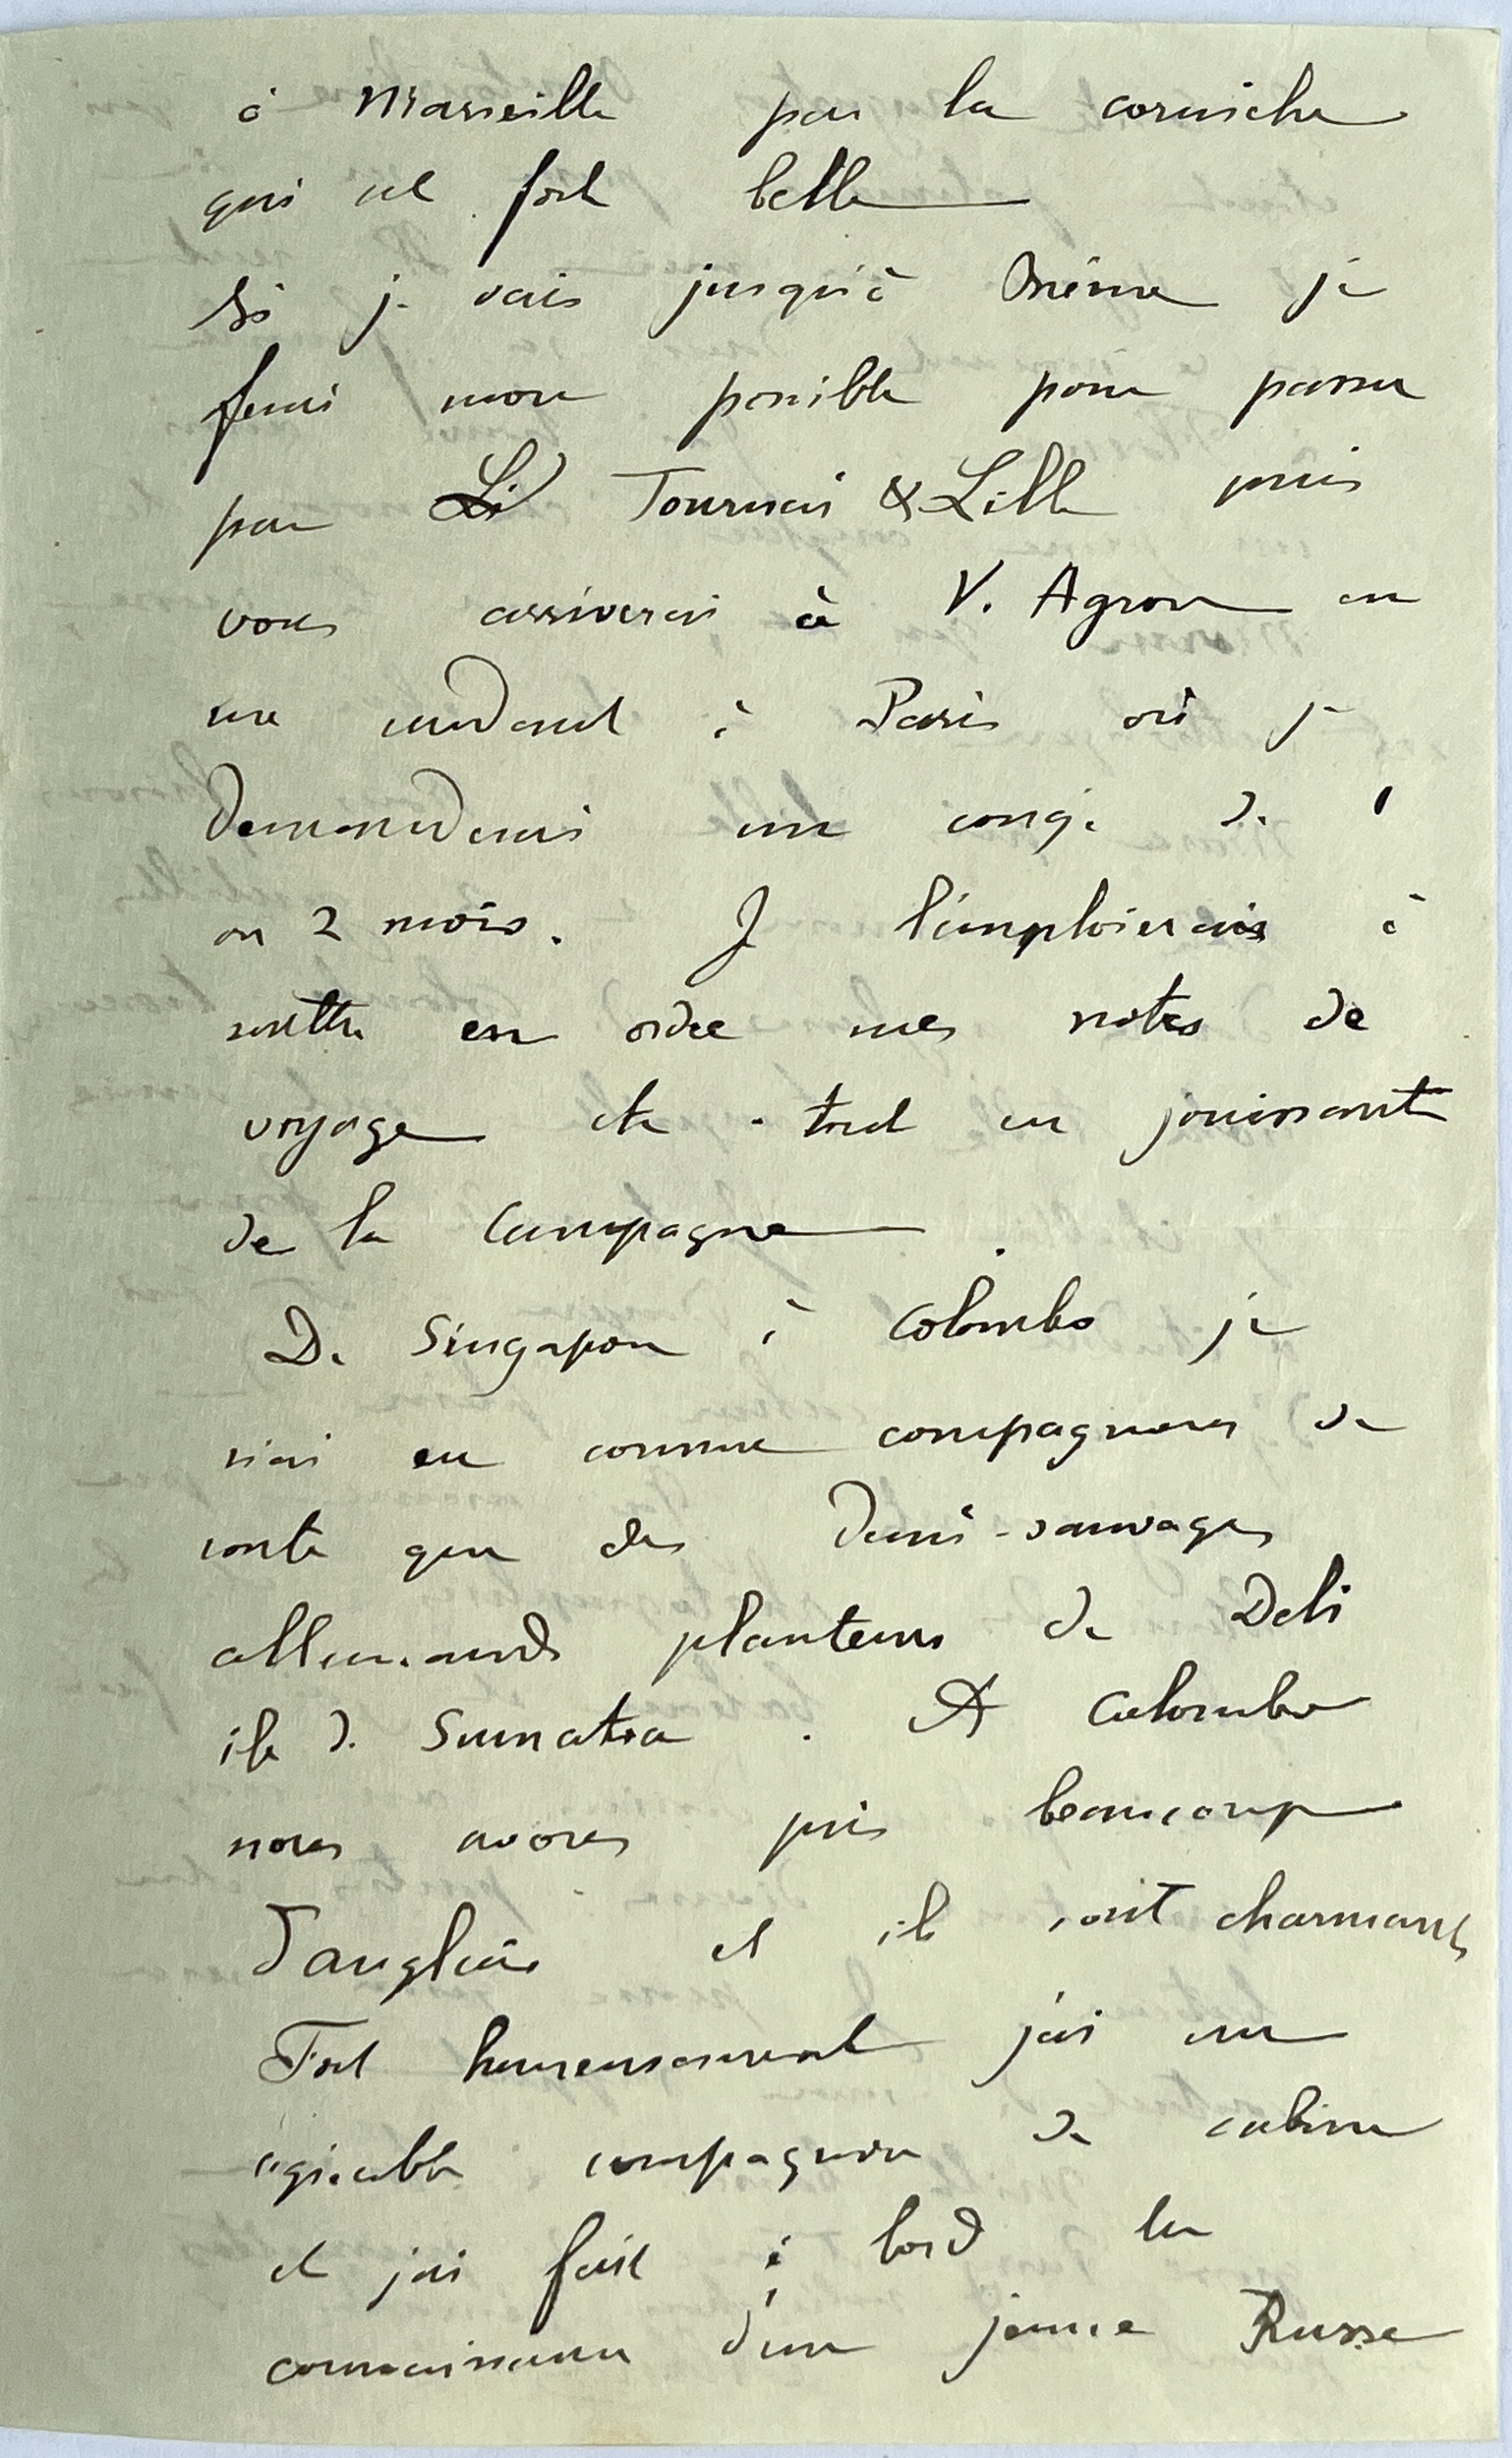 à Marseille par la corniche
qui est fort belle
Si je vais jusqu'à Brême je
ferai mon possible pour passer
par Li Tournai & Lille puis
vous arriverai à V. Agron en
me rendant à Paris où je
demanderais un congé de 1
ou 2 mois. Je l'emploierais à
mettre en ordre mes notes de
voyage etc - tout en jouissant
de la campagne.
De Singapore à Colombo je
n'ai eu comme compagnons de
route que des demi-sauvages
allemands planteurs de Deli
île de Sumatra. A Colombo
nous avons pris beaucoup
d'anglais et ils sont charmants
Fort heureusement j'ai un
agréable compagnon de cabine
et j'ai fait à bord la
connaissance d'un jeune Russe